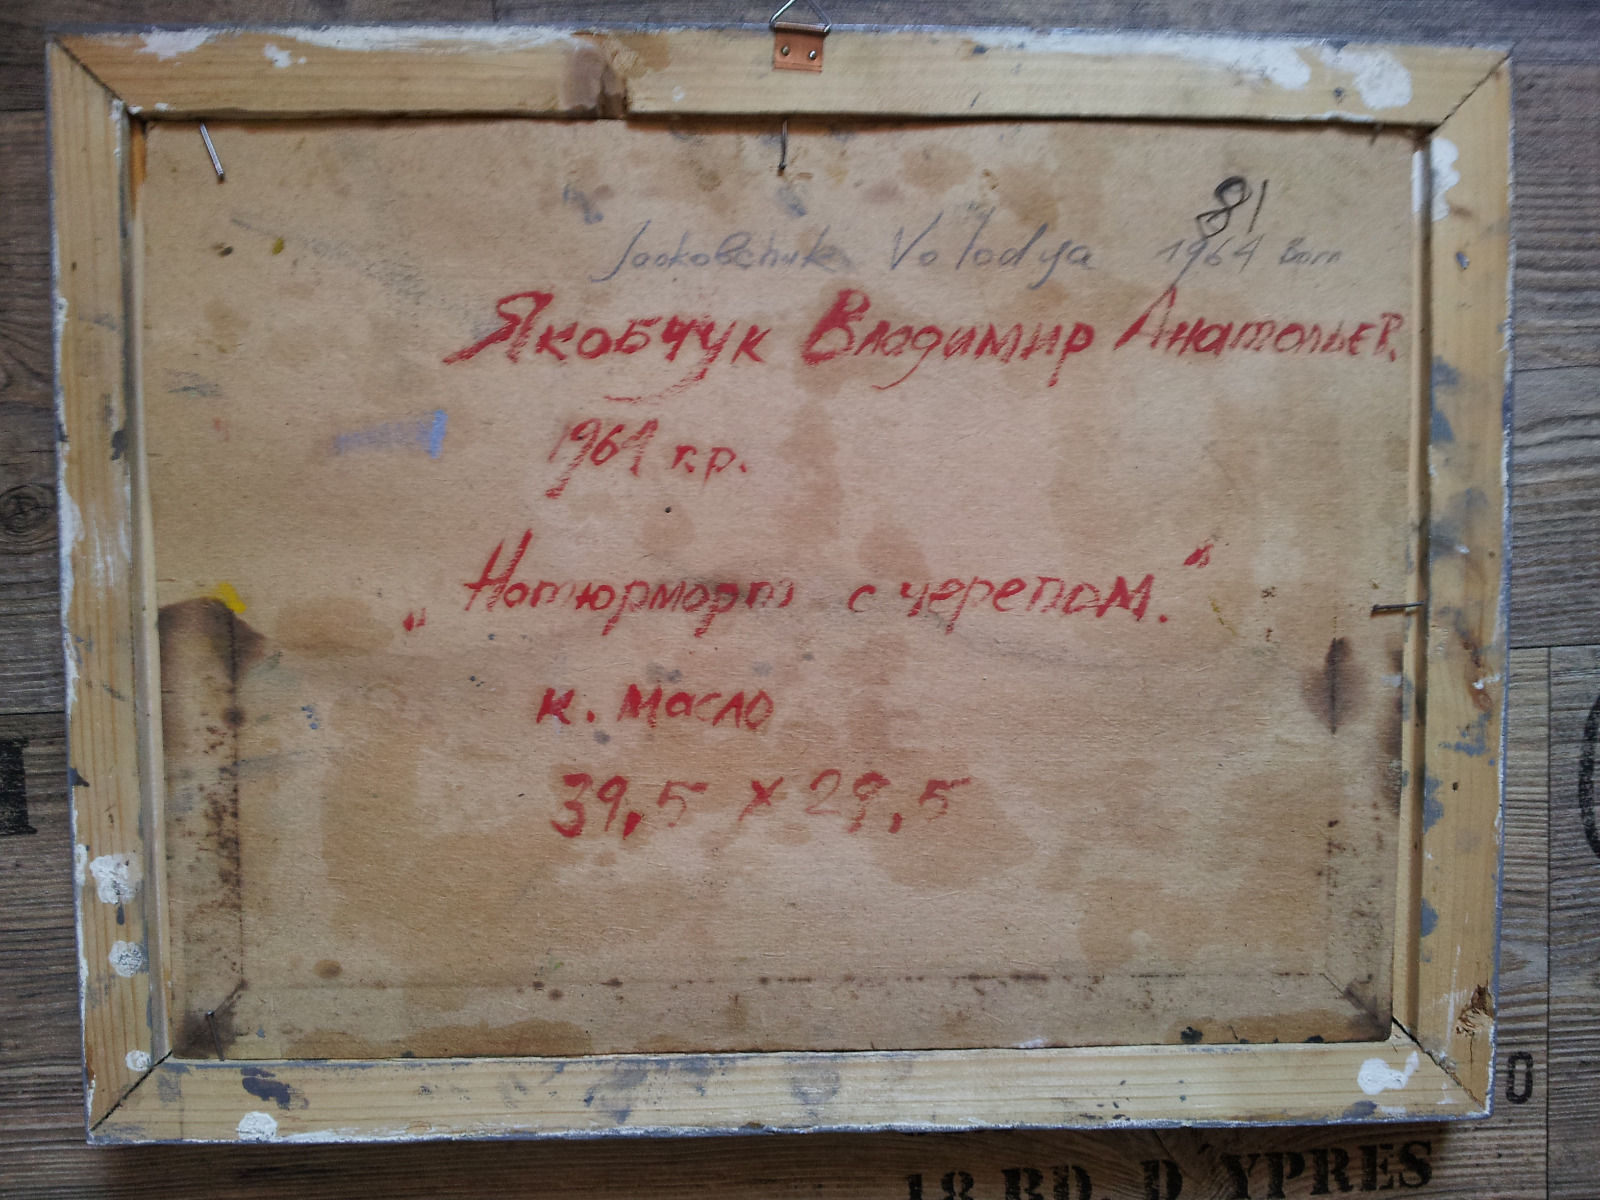 81
Jaokobchuk Volodya 1964 Born
Якобчук Владимир Анатольев.
1964 г.р.
„Натюрморт с черепом."
к. масло
39,5 x 29,5
0
18 BD. D'YPRES